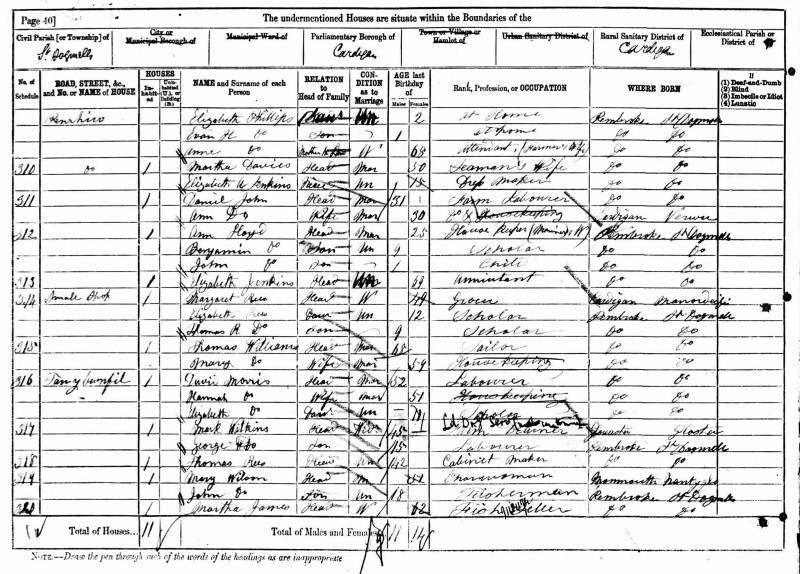 Page 40] The undermentioned Houses are situate within the Boundaries of the
Civil Parish [or Township] of St Dogmells
City or Municipal Borough of
Municipal Ward of
Parliamentary Borough of Cardigan
Town or Village or Hamlet of
Urban Sanitary District of
Rural Sanitary District of Cardigan
Ecclesiastical Parish or District of
No. of Schedule
ROAD, STREET, &c., and No. or NAME of HOUSE
HOUSES
Inhabited
Uninhabited (U.), or Building (B.)
NAME and Surname of each Person
RELATION to Head of Family
CONDITION as to Marriage
AGE last Birthday of
Males
Females
Rank, Profession, or OCCUPATION
WHERE BORN
If
(1) Deaf-and-Dumb
(2) Blind
(3) Imbecile or Idiot
(4) Lunatic
Elizabeth Phillips Un 2 at Home Pembroke St Dogmells
Evan H Do Son 1 at home Do Do
Anne Do W 68 Do Do
310 Do 1 Martha Davies Head Mar 50 Seaman's Wife Do Do
Elizabeth Jenkins Un Dress Maker Do Do
311 1 Daniel John Head Mar 31 Farm Labourer Do Do
Ann Do Wife Mar 30 Housekeeping Cardigan Verwic
312 1 Ann Lloyd Head Mar 25 House Keeper Pembroke St Dogmells
Benjamin Do Son Un 9 Scholar Do Do
John Do Son 1 Child Do Do
313 1 Elizabeth Jenkins Head Un 69 Annuitant Do Do
314 Small Shop 1 Margaret Rees Head W Grocer Cardigan
Elizabeth Rees Daur Un 12 Scholar Pembroke St Dogmells
Thomas R Do Son 9 Scholar Do Do
315 1 Thomas Williams Head Mar 68 Tailor Do Do
Mary Do Wife Mar 59 Housekeeping Do
316 1 David Morris Head Mar 52 Labourer Do Do
Hannah Do Wife Mar 51 Housekeeping Do Do
Elizabeth Do Daur Un Do Do
317 1 Mark Wilkins Head 45 Gloster
George Do Son 15 Labourer Pembroke St Dogmells
318 1 Thomas Rees Head Un 42 Cabinet Maker Do Do
319 1 Mary Wilson Head Charwoman Monmouth
John Do Son Un 18 Fisherman Pembroke St Dogmells
320 1 Martha James Head W 62 Fish Seller Do Do
Total of Houses... 11
Total of Males and Females... 11 14
NOTE.—Draw the pen through such of the words of the headings as are inappropriate